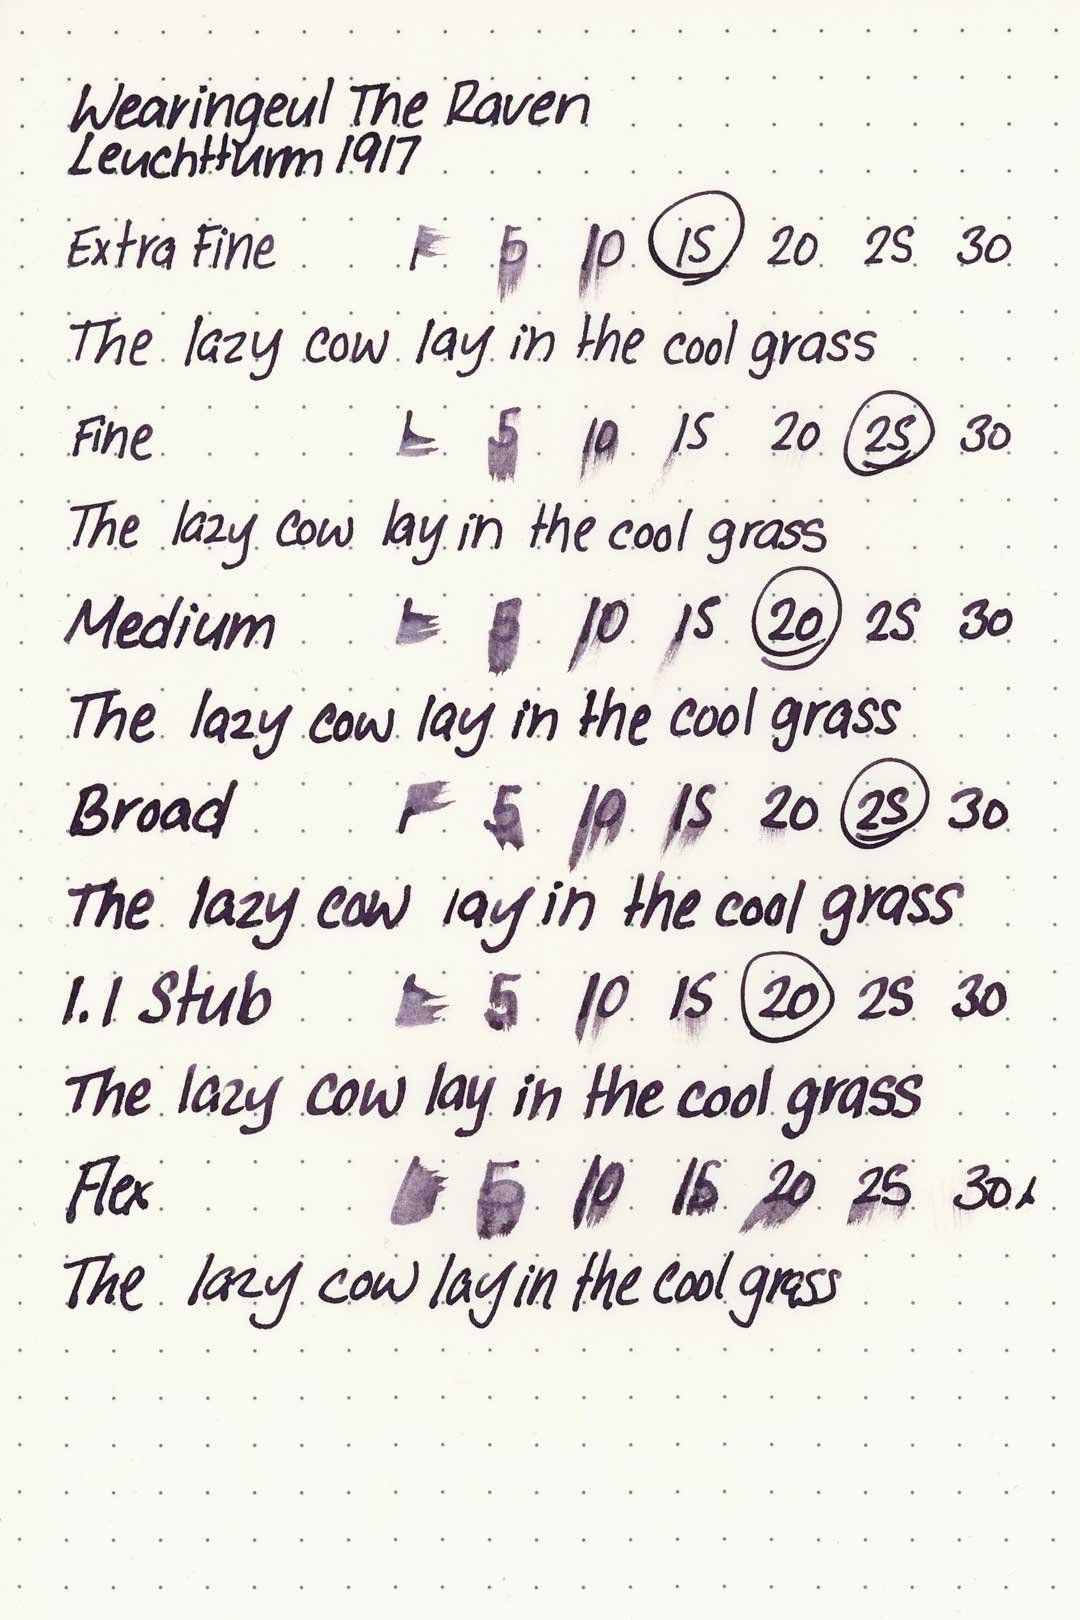 Wearingeul The Raven
Leuchtturm 1917
Extra Fine F 5 10 15 20 25 30
The lazy cow lay in the cool grass
Fine L 5 10 15 20 25 30
The lazy cow lay in the cool grass
Medium L 5 10 15 20 25 30
The lazy cow lay in the cool grass
Broad F 5 10 15 20 25 30
The lazy cow lay in the cool grass
1.1 Stub L 5 10 15 20 25 30
The lazy cow lay in the cool grass
Flex 5 10 15 20 25 30+
The lazy cow lay in the cool grass